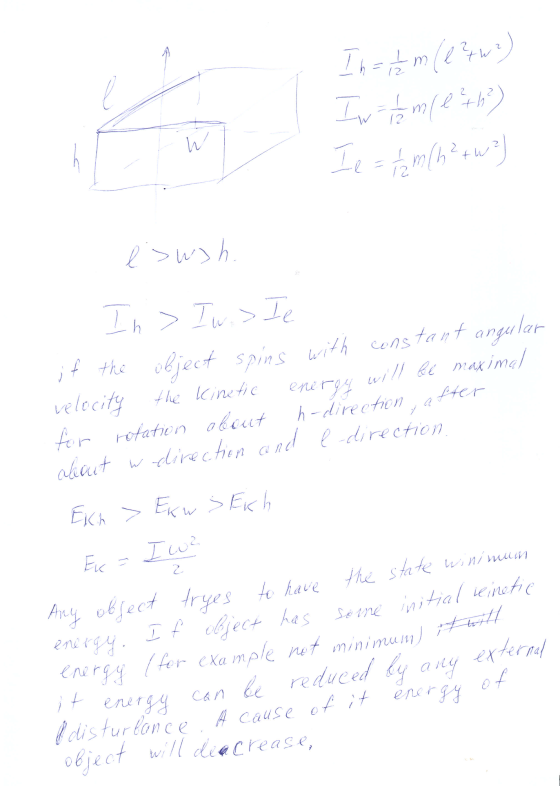 l
h
W
I_h = 1/12 m (l² + w²)
I_w = 1/12 m (l² + h²)
I_e = 1/12 m (h² + w²)
l > w > h.
I_h > I_w > I_e
if the object spins with constant angular
velocity the kinetic energy will be maximal
for rotation about h-direction, after
about w-direction and l-direction.
E_Kh > E_Kw > E_Kh
E_K = Iω²/2
Any object tryes to have the state winimum
energy. If object has some initial kinetic
energy (for example not minimum) it will
it energy can be reduced by any external
disturbance. A cause of it energy of
object will deacrease,